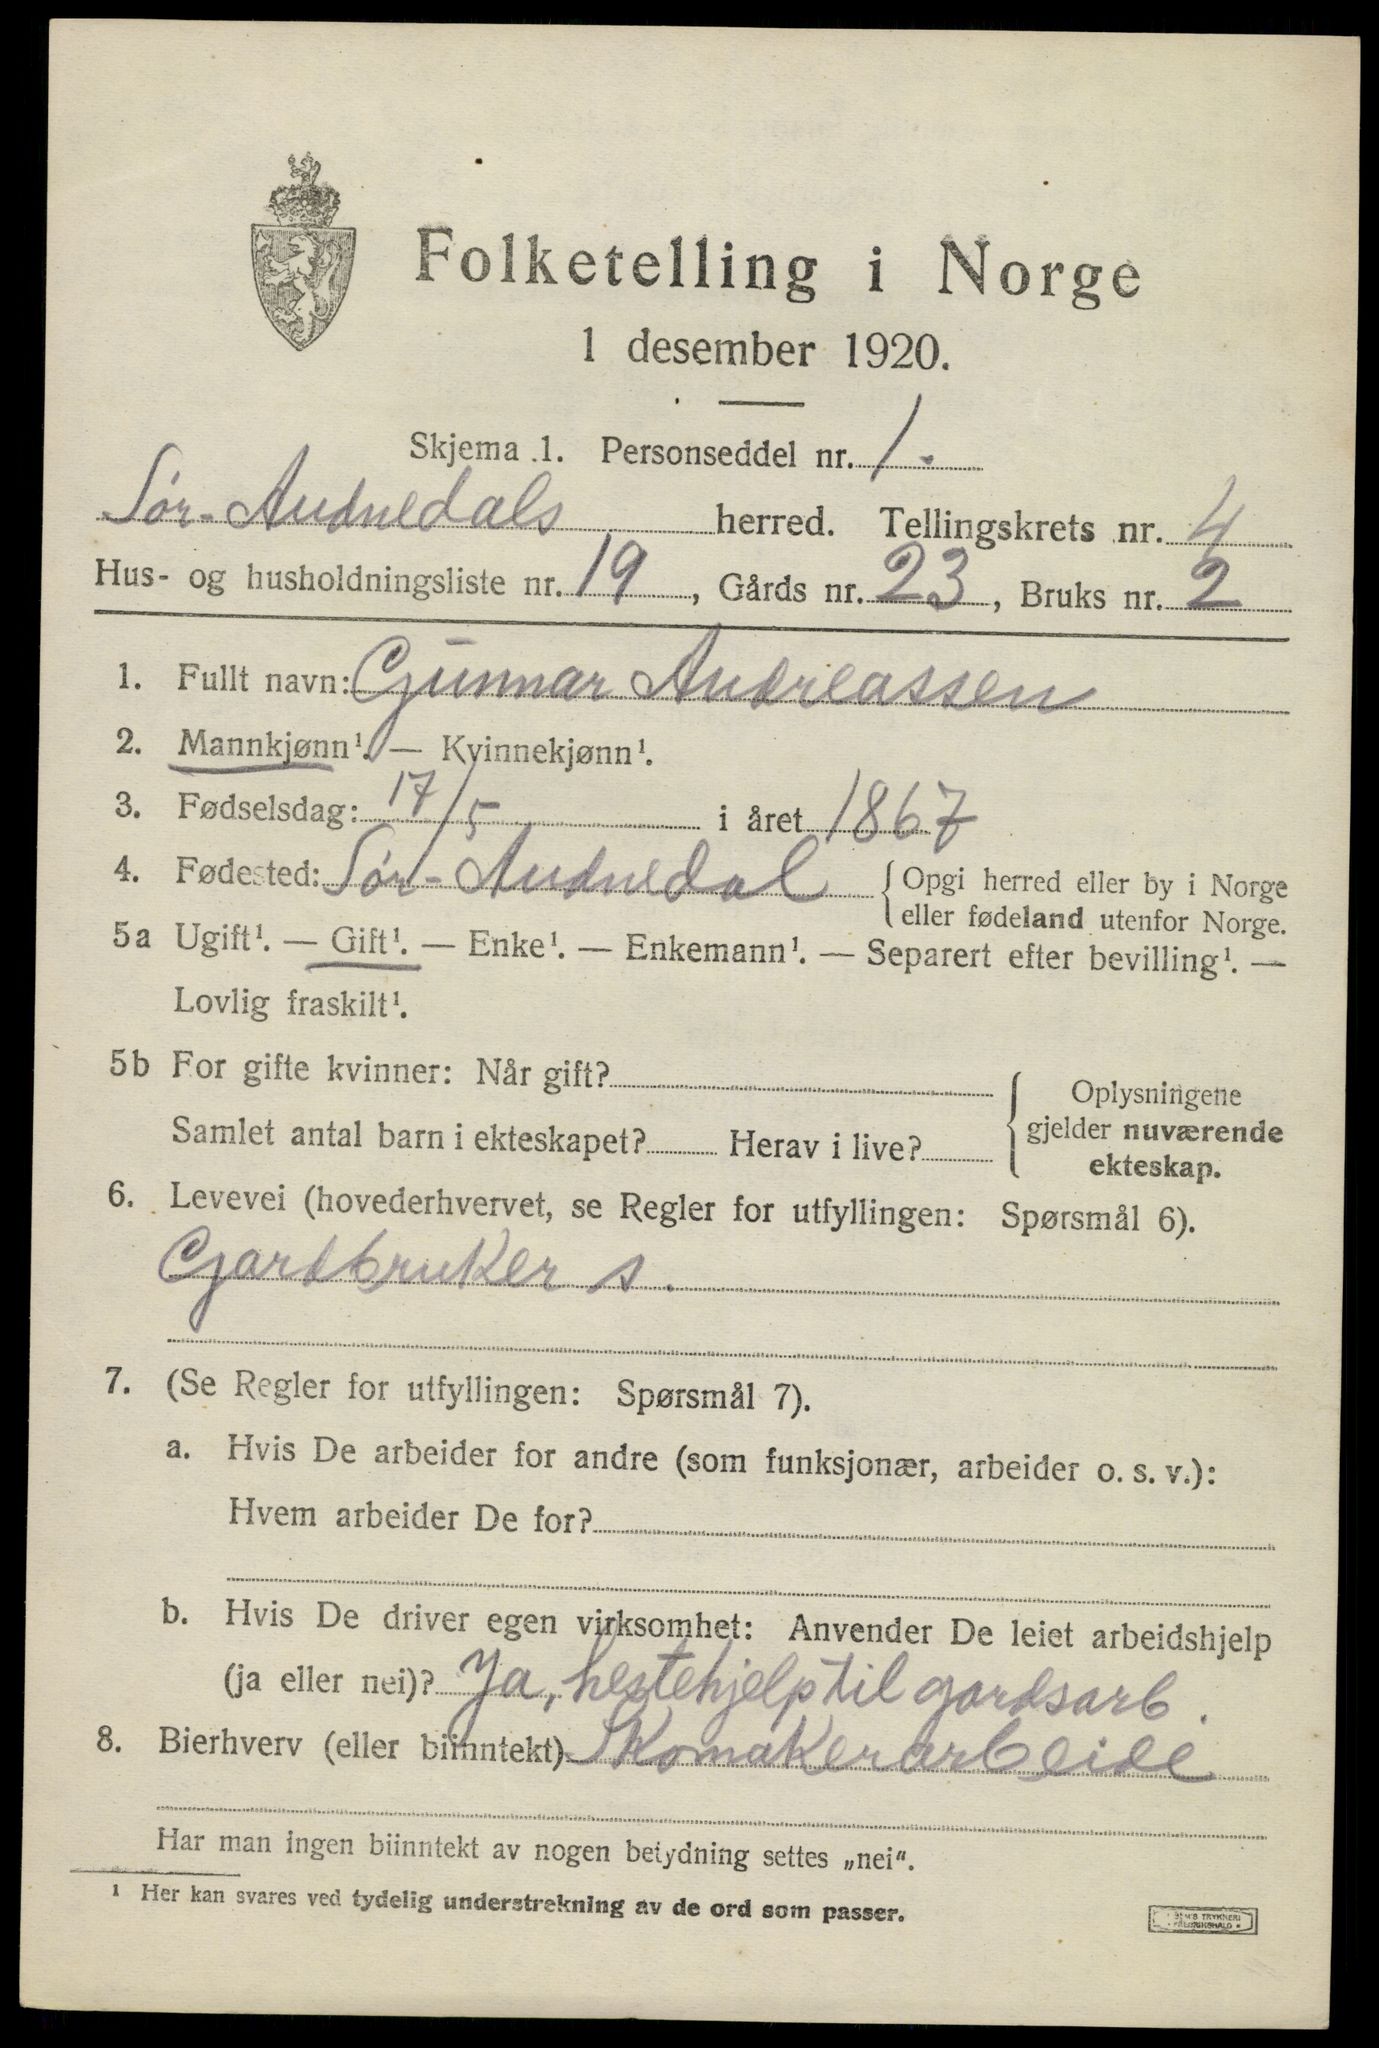 Folketelling i Norge
1 desember 1920.
Skjema 1. Personseddel nr. 1.
Sør-Audnedals herred. Tellingskrets nr. 4
Hus- og husholdningsliste nr. 19, Gårds nr. 23, Bruks nr. 2
1. Fullt navn: Gunnar Andreassen
2. Mannkjønn¹. — Kvinnekjønn¹.
3. Fødselsdag: 17/5 i året 1867
4. Fødested: Sør-Audnedal { Opgi herred eller by i Norge
eller fødeland utenfor Norge.
5a Ugift¹. — Gift¹. — Enke¹. — Enkemann¹. — Separert efter bevilling¹. —
Lovlig fraskilt¹.
5b For gifte kvinner: Når gift?
Samlet antal barn i ekteskapet? Herav i live?
{ Oplysningene
gjelder nuværende
ekteskap.
6. Levevei (hovederhvervet, se Regler for utfyllingen: Spørsmål 6).
Gardbruker s.
7. (Se Regler for utfyllingen: Spørsmål 7).
a. Hvis De arbeider for andre (som funksjonær, arbeider o. s. v.):
Hvem arbeider De for?
b. Hvis De driver egen virksomhet: Anvender De leiet arbeidshjelp
(ja eller nei)? Ja, hestehjelp til gardsarb.
8. Bierhverv (eller biinntekt) Skomakerarbeide
Har man ingen biinntekt av nogen betydning settes „nei“.
¹ Her kan svares ved tydelig understrekning av de ord som passer.
TRYKKERI
FREDRIKSHALD